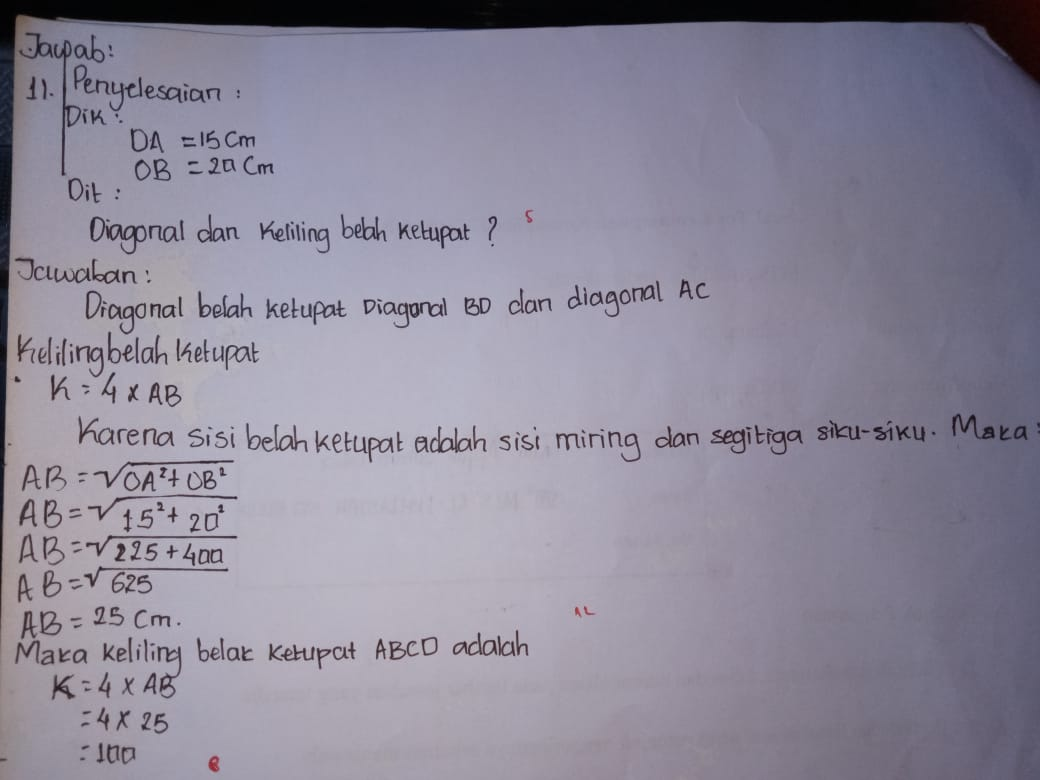 Jawab:
11. Penyelesaian :
Dik :
OA = 15 Cm
OB = 20 Cm
Dit :
Diagonal dan Keliling belah Ketupat ?
S
Jawaban :
Diagonal belah ketupat Diagonal BD dan diagonal AC
Keliling belah Ketupat
K = 4 x AB
Karena sisi belah ketupat adalah sisi miring dan segitiga siku-siku. Maka :
AB = √OA² + OB²
AB = √15² + 20²
AB = √225 + 400
AB = √625
AB = 25 Cm.
AL
Maka keliling belak Ketupat ABCD adalah
K = 4 x AB
= 4 x 25
= 100